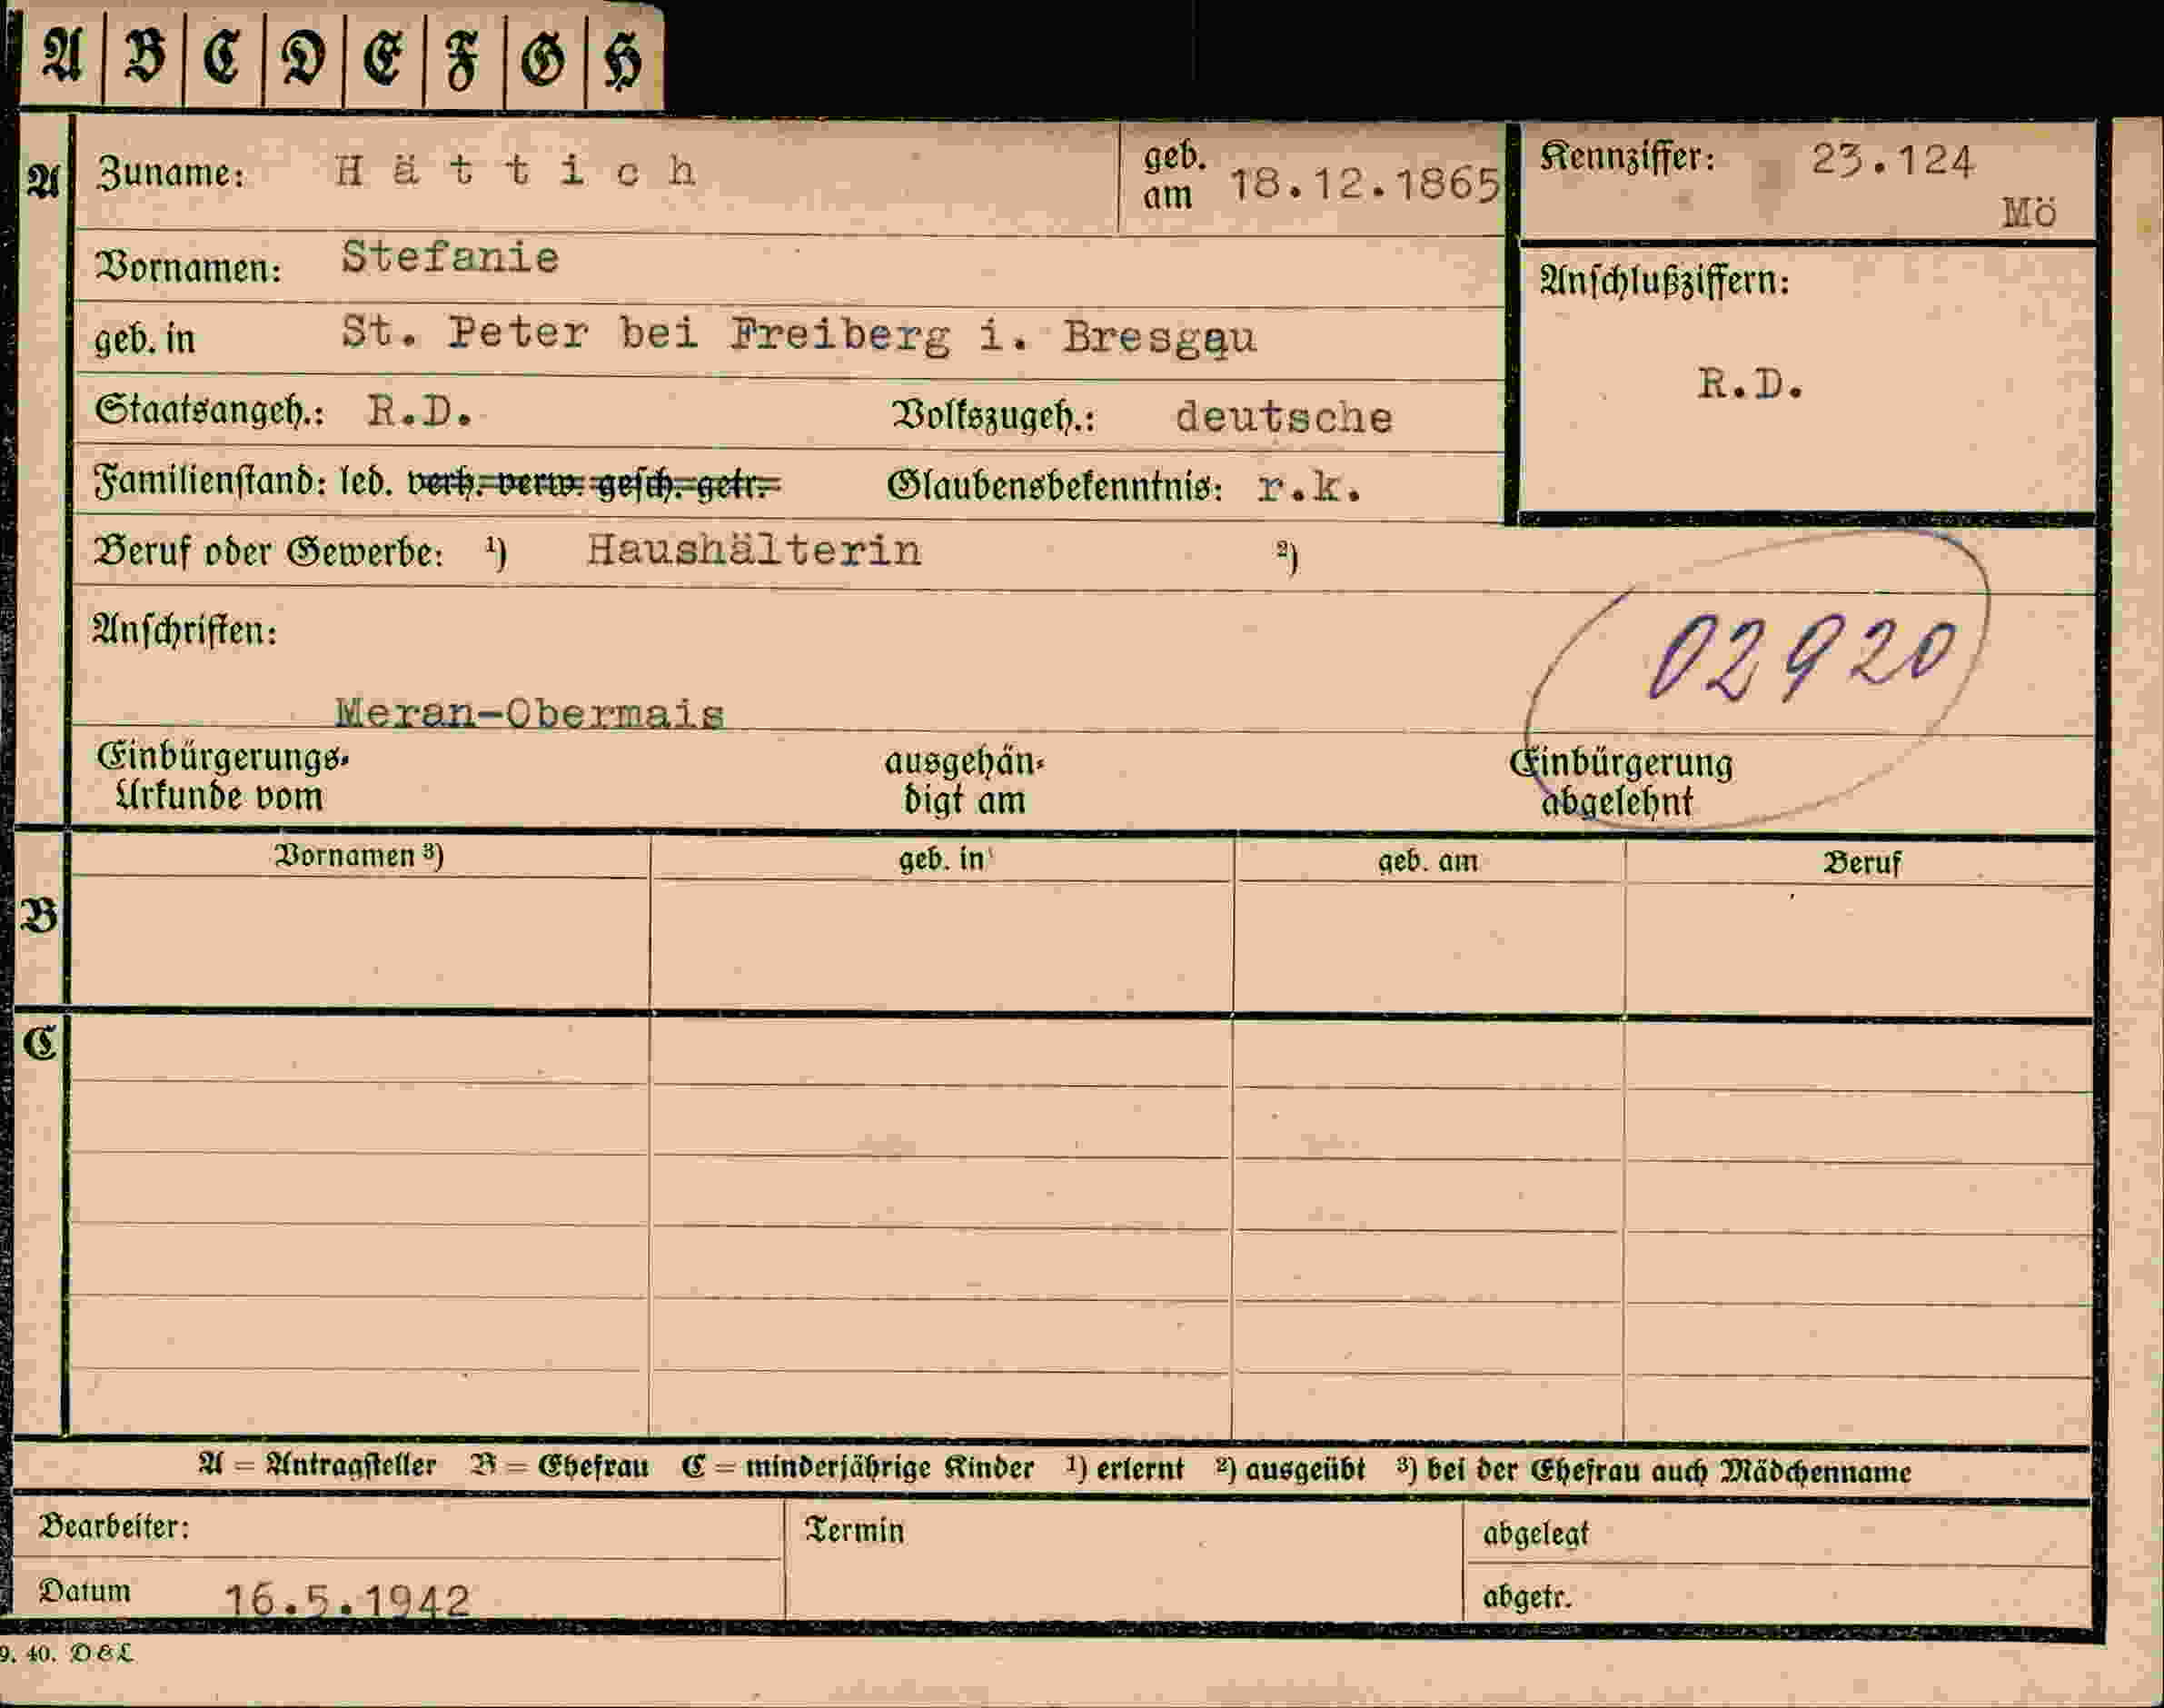 A B C D E F G H
A Zuname: Hättich geb. am 18.12.1865 Kennziffer: 23.124
Mö
Vornamen: Stefanie
Anschlußziffern:
geb. in St. Peter bei Freiberg i. Bresgau
R.D.
Staatsangeh.: R.D. Volkszugeh.: deutsche
Familienstand: led. verh. verw. gesch. getr. Glaubensbekenntnis: r.k.
Beruf oder Gewerbe: ¹) Haushälterin ²)
Anschriften:
02920
Meran-Obermais
Einbürgerungs- ausgehän- Einbürgerung
Urkunde vom digt am abgelehnt
Vornamen ³) geb. in geb. am Beruf
B
C
A = Antragsteller B = Ehefrau C = minderjährige Kinder ¹) erlernt ²) ausgeübt ³) bei der Ehefrau auch Mädchenname
Bearbeiter: Termin abgelegt
Datum 16.5.1942 abgetr.
9. 40. D & L